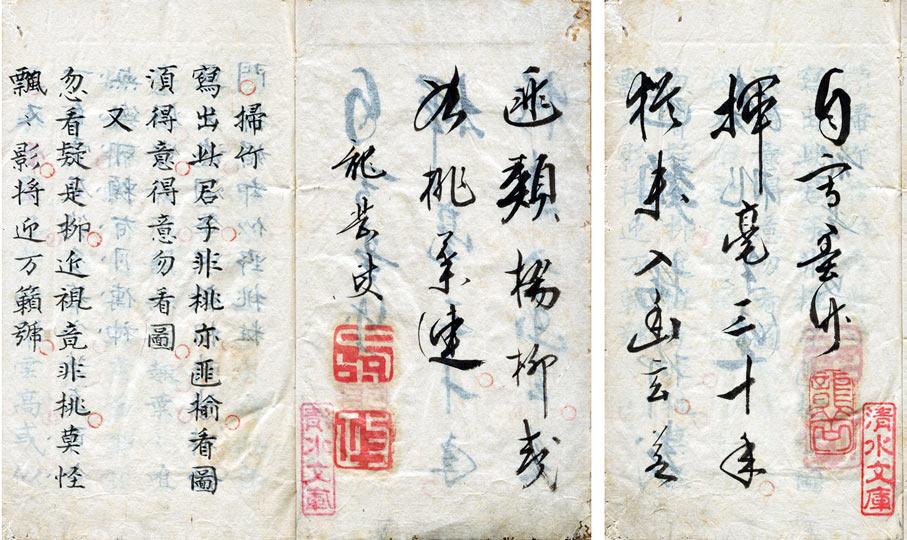 自寫墨竹
揮毫三十年
猶未入幽玄
匪類楊柳或
如桃葉連
清水文庫
清水文庫
掃竹
寫出此君子非桃亦匪榆看圖
須得意得意勿看圖
又
忽看疑是柳近視竟非桃莫怪
飄〻影將近万籟號